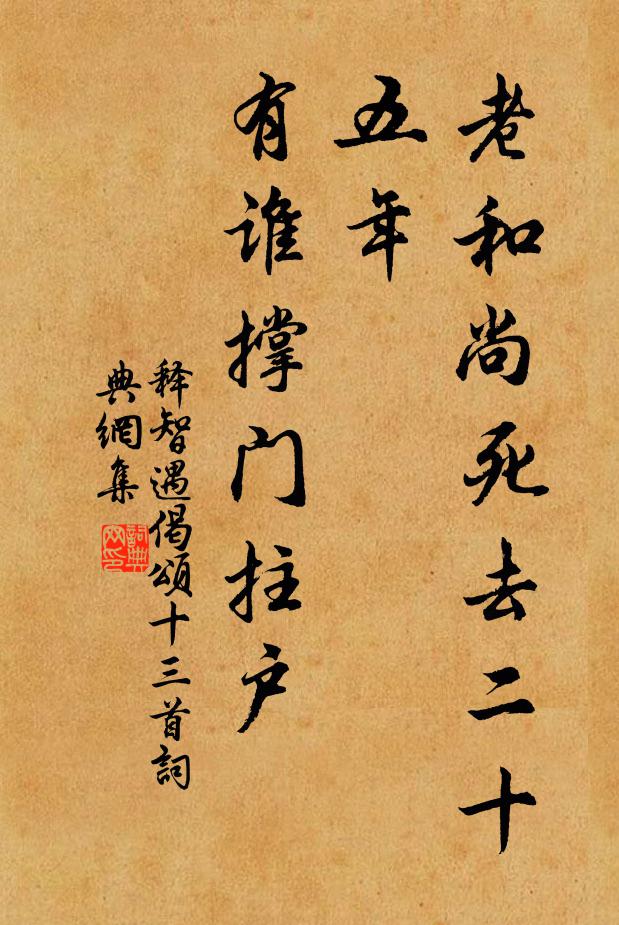 老和尚死去二十
五年
有谁撑门拄户
释智遇偈頌十三首詞
典網集
詞典
网印